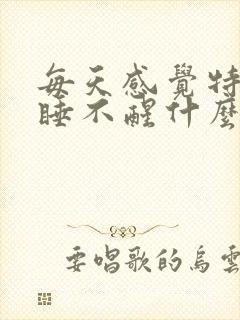 每天感覺特
睡不醒什麼
要唱歌的烏雲